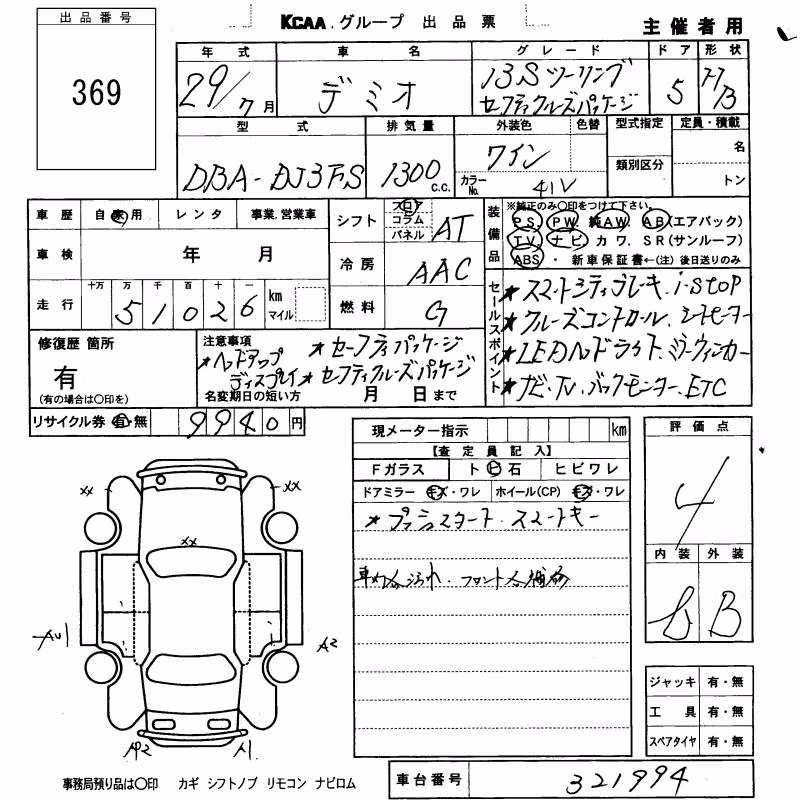 出品番号
369
KCAA.グループ 出品票
主催者用
年式 車名 グレード ドア 形状
29/7月 デミオ 13Sツーリング 5
セーフティクルーズパッケージ H/B
型式 排気量 外装色 色替 型式指定 定員・積載
DBA-DJ3FS 1300c.c. ワイン 名
カラーNo. 41V 類別区分 トン
車歴 自家用 レンタ 事業.営業車
シフト フロア コラム パネル AT
装備品 ※純正のみ○印をつけて下さい。
PS. PW. 純AW. AB(エアバック)
TV. ナビ. カワ. SR(サンルーフ)
ABS・ 新車保証書←(注)後日送りのみ
車検 年 月
冷房 AAC
走行 十万 万 千 百 十 一
51026 km マイル
燃料 G
セールスポイント
★スマートシティブレーキ. i-stop
★クルーズコントロール. シートヒーター
★LEDヘッドライト. ミラーウィンカー
★ナビ. TV. バックモニター. ETC
修復歴 箇所
有
(有の場合は○印を)
注意事項 ★セーフティパッケージ
★ヘッドアップディスプレイ ★セーフティクルーズパッケージ
名変期日の短い方 月 日まで
リサイクル券 有・無 9940円
現メーター指示 km
【査定員記入】
Fガラス ト ビ 石 ヒビワレ
ドアミラー キズ・ワレ ホイール(CP) キズ・ワレ
★プッシュスタート. スマートキー
車内 汚れ. フロント
評価点
4
内装 外装
B
XX XX
XX
A2
A2 A1
ジャッキ 有・無
工具 有・無
スペアタイヤ 有・無
事務局預り品は○印 カギ シフトノブ リモコン ナビロム
車台番号 321994